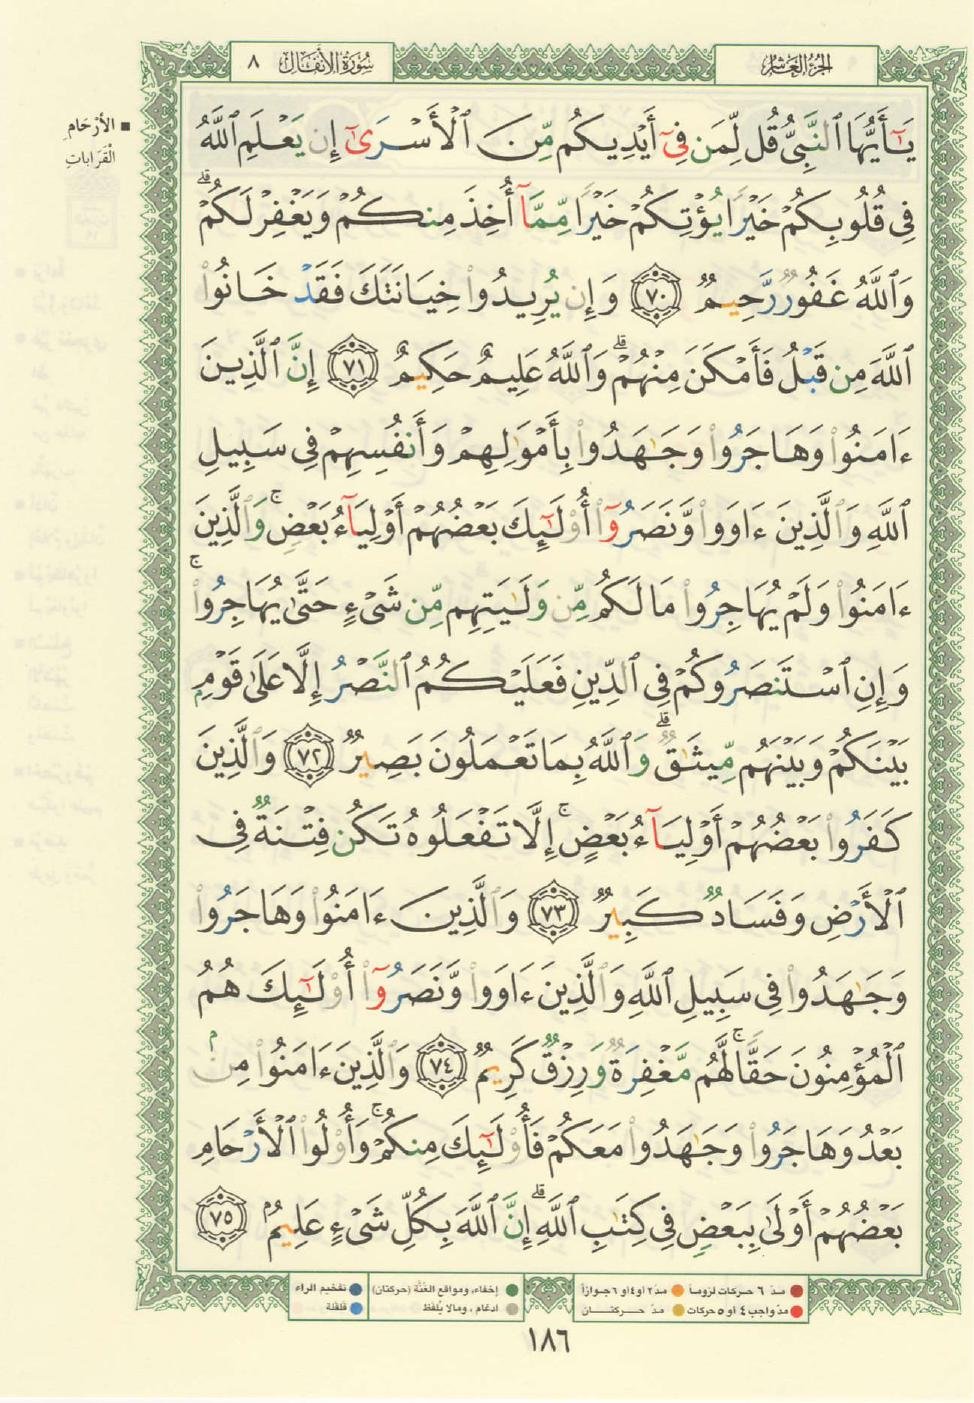 سُورَةُ الأَنفَال ٨
الجُزءُ العَاشِرُ
يَـٰٓأَيُّهَا ٱلنَّبِىُّ قُل لِّمَن فِىٓ أَيْدِيكُم مِّنَ ٱلْأَسْرَىٰٓ إِن يَعْلَمِ ٱللَّهُ
فِى قُلُوبِكُمْ خَيْرًا يُؤْتِكُمْ خَيْرًا مِّمَّآ أُخِذَ مِنكُمْ وَيَغْفِرْ لَكُمْ ۗ
وَٱللَّهُ غَفُورٌ رَّحِيمٌ ﴿٧٠﴾ وَإِن يُرِيدُوا۟ خِيَانَتَكَ فَقَدْ خَانُوا۟
ٱللَّهَ مِن قَبْلُ فَأَمْكَنَ مِنْهُمْ ۗ وَٱللَّهُ عَلِيمٌ حَكِيمٌ ﴿٧١﴾ إِنَّ ٱلَّذِينَ
ءَامَنُوا۟ وَهَاجَرُوا۟ وَجَـٰهَدُوا۟ بِأَمْوَٰلِهِمْ وَأَنفُسِهِمْ فِى سَبِيلِ
ٱللَّهِ وَٱلَّذِينَ ءَاوَوا۟ وَّنَصَرُوٓا۟ أُو۟لَـٰٓئِكَ بَعْضُهُمْ أَوْلِيَآءُ بَعْضٍ ۚ وَٱلَّذِينَ
ءَامَنُوا۟ وَلَمْ يُهَاجِرُوا۟ مَا لَكُم مِّن وَلَـٰيَتِهِم مِّن شَىْءٍ حَتَّىٰ يُهَاجِرُوا۟ ۚ
وَإِنِ ٱسْتَنصَرُوكُمْ فِى ٱلدِّينِ فَعَلَيْكُمُ ٱلنَّصْرُ إِلَّا عَلَىٰ قَوْمٍ
بَيْنَكُمْ وَبَيْنَهُم مِّيثَـٰقٌ ۗ وَٱللَّهُ بِمَا تَعْمَلُونَ بَصِيرٌ ﴿٧٢﴾ وَٱلَّذِينَ
كَفَرُوا۟ بَعْضُهُمْ أَوْلِيَآءُ بَعْضٍ ۚ إِلَّا تَفْعَلُوهُ تَكُن فِتْنَةٌ فِى
ٱلْأَرْضِ وَفَسَادٌ كَبِيرٌ ﴿٧٣﴾ وَٱلَّذِينَ ءَامَنُوا۟ وَهَاجَرُوا۟
وَجَـٰهَدُوا۟ فِى سَبِيلِ ٱللَّهِ وَٱلَّذِينَ ءَاوَوا۟ وَّنَصَرُوٓا۟ أُو۟لَـٰٓئِكَ هُمُ
ٱلْمُؤْمِنُونَ حَقًّا ۚ لَّهُم مَّغْفِرَةٌ وَرِزْقٌ كَرِيمٌ ﴿٧٤﴾ وَٱلَّذِينَ ءَامَنُوا۟ مِنۢ
بَعْدُ وَهَاجَرُوا۟ وَجَـٰهَدُوا۟ مَعَكُمْ فَأُو۟لَـٰٓئِكَ مِنكُمْ ۚ وَأُو۟لُوا۟ ٱلْأَرْحَامِ
بَعْضُهُمْ أَوْلَىٰ بِبَعْضٍ فِى كِتَـٰبِ ٱللَّهِ ۗ إِنَّ ٱللَّهَ بِكُلِّ شَىْءٍ عَلِيمٌۢ ﴿٧٥﴾
■ الأَرْحَامِ
الْقَرَابَاتِ
● مدّ ٦ حركات لزوماً ● مدّ ٢ أو ٤ أو ٦ جوازاً
● مدّ واجب ٤ أو ٥ حركات ● مدّ حركتان
● إخفاء، ومواقع الغُنَّة (حركتان) ● تفخيم الراء
● ادغام، ومالا يُلفَظ ● قلقلة
١٨٦